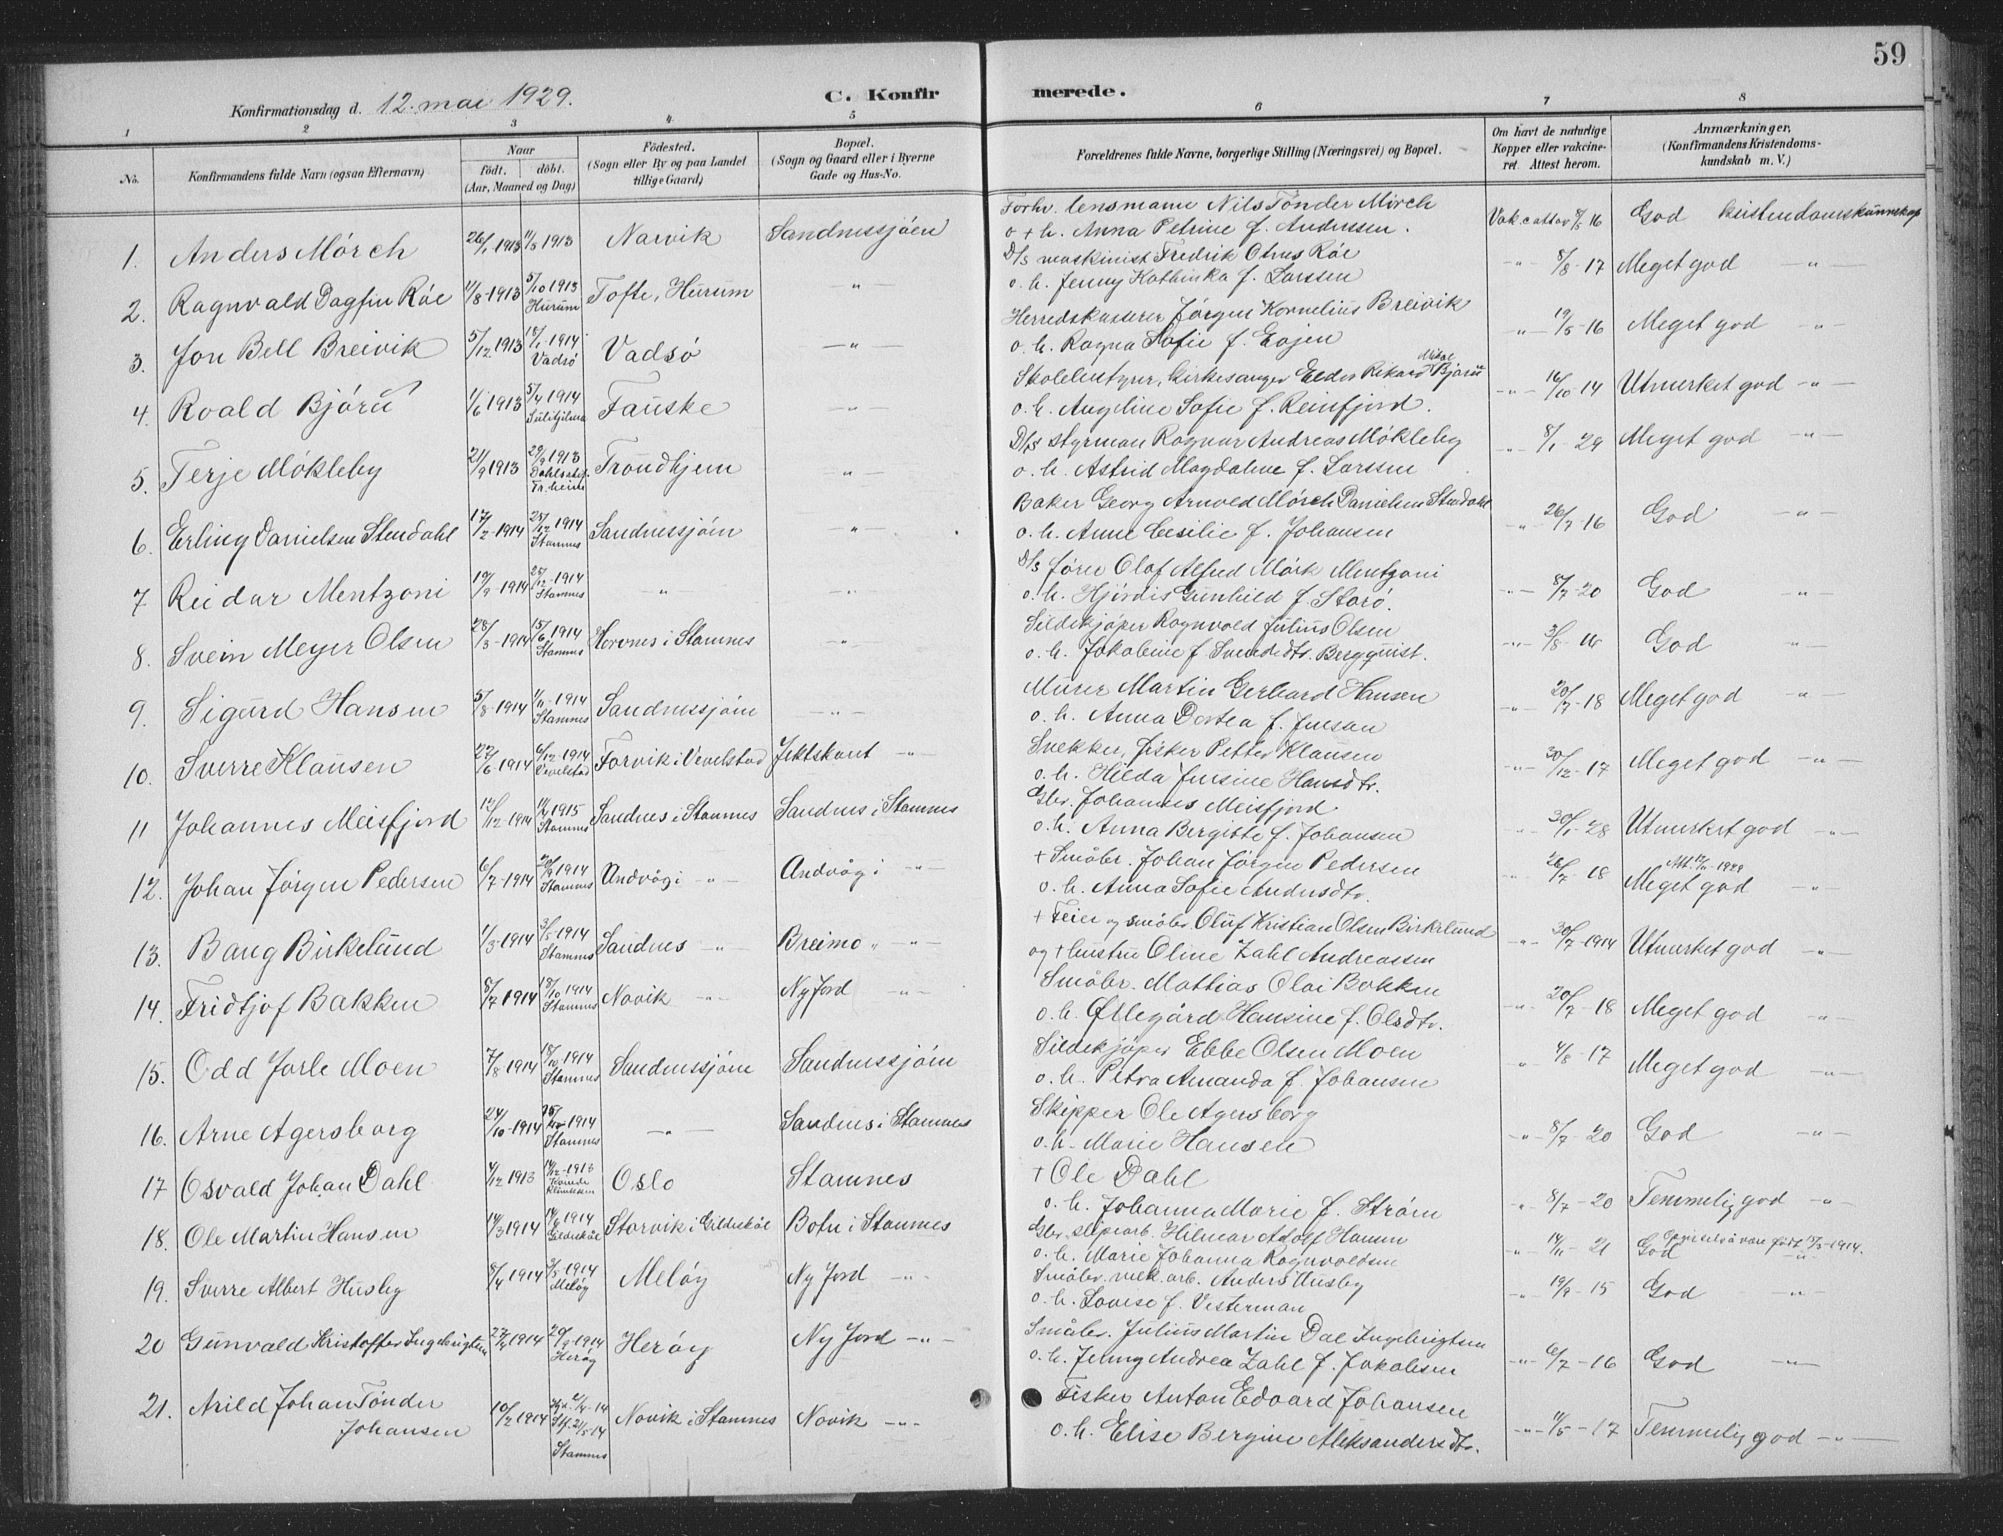 59
Konfirmationsdag d. 12. mai 1929.
C. Konfirmerede.
1 2 3 4 5 6 7 8
No.
Konfirmandens fulde Navn (ogsaa Efternavn)
Naar
født. døbt.
(Aar, Maaned og Dag)
Fødested.
(Sogn eller By og paa Landet
tillige Gaard)
Bopæl.
(Sogn og Gaard eller i Byerne
Gade og Hus-No.
Forældrenes fulde Navne, borgerlige Stilling (Næringsvei) og Bopæl.
Om havt de naturlige
Kopper eller vakcine-
ret. Attest herom.
Anmærkninger,
(Konfirmandens Kristendoms-
kundskab m. V.)
1. Anders Mörch 26/1 1913 11/5 1913 Narvik Sandnessjöen
Forhv. lensmann Nils Tönder Mörch
o + h. Anna Petrine f. Anderssen.
Vakc attest 8/5 16 God kristendomskunnskap
2. Ragnvald Dagfin Röe 11/8 1913 5/10 1913 Hurum Tofte, Hurum -"-
D/S maskinist Fredrik Otnes Röe
o. h. Jenny Kathinka f. Larssen
-"- 8/8-17 Meget god -"-
3. Jon Bell Breivik 5/12 1913 18/1 1914 Vadsö Vadsö -"-
Herredskasserer Jörgen Kornelius Breivik
o. h. Ragna Sofie f. Eojen
-"- 19/5-16 Meget god -"-
4. Roald Björu 1/6 1913 5/4 1914 Sulitjelma Fauske -"-
Skolebestyrer, kirkesanger Elder Rikard Mikal Björu
o. h. Angeline Sofie f. Reinfjord.
-"- 16/10 14 Utmerket god -"-
5. Terje Mökleby 21/9 1913 29/9 1913 Trondhjem -"-
D/S styrman Ragnar Andreas Mökleby
o. h. Astrid Magdalene f. Larssen
-"- 8/1-29 Meget god -"-
6. Erling Danielsen Stendahl 17/2-1914 25/12 1914 Stamnes Sandnessjöen -"-
Baker Georg Arnold Mörch Danielsen Stendahl
o. h. Anne Cesilie f. Johansen
-"- 26/7-16 God -"-
7 Reidar Mentzoni 19/9 1914 25/12-1914 Stamnes -"- -"-
D/S förer Olaf Alfred Mörk Mentzoni
o. h. Hjördis Gunhild f Starö.
-"- 8/7-20 God -"-
8. Svein Meyer Olsen 28/3-1914 15/6 1914 Stamnes Horvnes i Stamnes -"-
Sildekjöper Ragnvald Julius Olsen
o. h. Jakobine f Svendsdtr. Bergqvist.
-"- 3/8-16 God -"-
9. Sigurd Hansen 5/8-1914 1/11-1914 Stamnes Sandnessjöen -"-
Murer Martin Gerhard Hansen
o. h. Anna Dortea f. Jensen
-"- 20/7-18 Meget god -"-
10. Sverre Klausen 27/6 1914 6/12-1914 Vevelstad Forvik i Vevelstad Jektskart -"-
Snekker, fisker Petter Klausen
o. h. Hilda Jensine Hansdtr.
-"- 30/12-17 Meget god -"-
11 Johannes Meisfjord 12/12-1914 11/4 1915 Stamnes Sandnes i Stamnes Sandnes i Stamnes
Gbr. Johannes Meisfjord
o. h. Anna Bergitte f. Johansen
-"- 30/1-28 Utmerket god -"-
12. Johan Jörgen Pedersen 6/7-1914 20/9 1914 Stamnes Andvåg i -"- Andvåg i -"-
+ Småbr. Johan Jörgen Pedersen
o. h. Anna Sofie Andersdtr.
-"- 26/7 18 Meget god -"-
13. Bang Birkelund 1/3-1914 3/5 1914 Stamnes Sandnes -"- Breimo " -"-
+ Feier og småbr. Oluf Kristian Olsen Birkelund
og + hustru Oline Zahl Andreassen
-"- 30/7-1914 Utmerket god -"-
14. Fridtjof Bakken 8/7 1914 18/10 1914 Stamnes Novik -"- Ny Jord -"-
Småbr. Mathias Olai Bakken
o. h. Öllegård Hansine f. Olsdtr.
-"- 20/7-18 Meget god -"-
15. Odd Jarle Moen 7/8 1914 18/10 1914 Stamnes Sandnessjöen Sandnessjöen
Sildekjöper Ebbe Olsen Moen
o. h. Petra Amanda f. Johansen
" 4/8-17 Meget god -"-
16. Arne Agersborg 24/10-1914 Stamnes -"- Sandnes i Stamnes
Skipper Ole Agersborg
o. h. Marie Hansen
-"- 8/7-20 God -"-
17 Osvald Johan Dahl 4/12 1913 14/12-1913 Oslo Stamnes
+ Ole Dahl
o. h. Johanna Marie f. Ström
-"- 8/7-20 Temmelig god -"-
18. Ole Martin Hansen 14/3 1914 14/6 1914 Gildeskål Storvik i Gildeskål Botn i Stamnes
Gbr. sliparb. Hilmar Adolf Hansen
o. h. Marie Johanna Ragnvaldsen
-"- 14/11-21 God -"-
19. Sverre Albert Husby 8/4 1914 3/5-1914 Melöy Melöy Ny Jord -"-
Småbr. mek. arb. Anders Husby
o. h. Lovise f. Vesterman
-"- 19/9-15 God -"-
20 Gunvald Kristoffer Ingebrigtsen 27/4 1914 20/9 1914 Heröy Heröy Ny Jord -"-
Småbr. Julius Martin Dal Ingebrigtsen
o. h. Jenny Andrea Zahl f. Jakobsen
-"- 6/7-16 God -"-
21. Arild Johan Tönder
Johansen 10/2 1914 Stamnes Novik i Stamnes Novik -"-
Fisker Anton Edvard Johansen
o. h. Elise Bergine Aleksandersdtr.
-"- 11/5-17 Temmelig god -"-